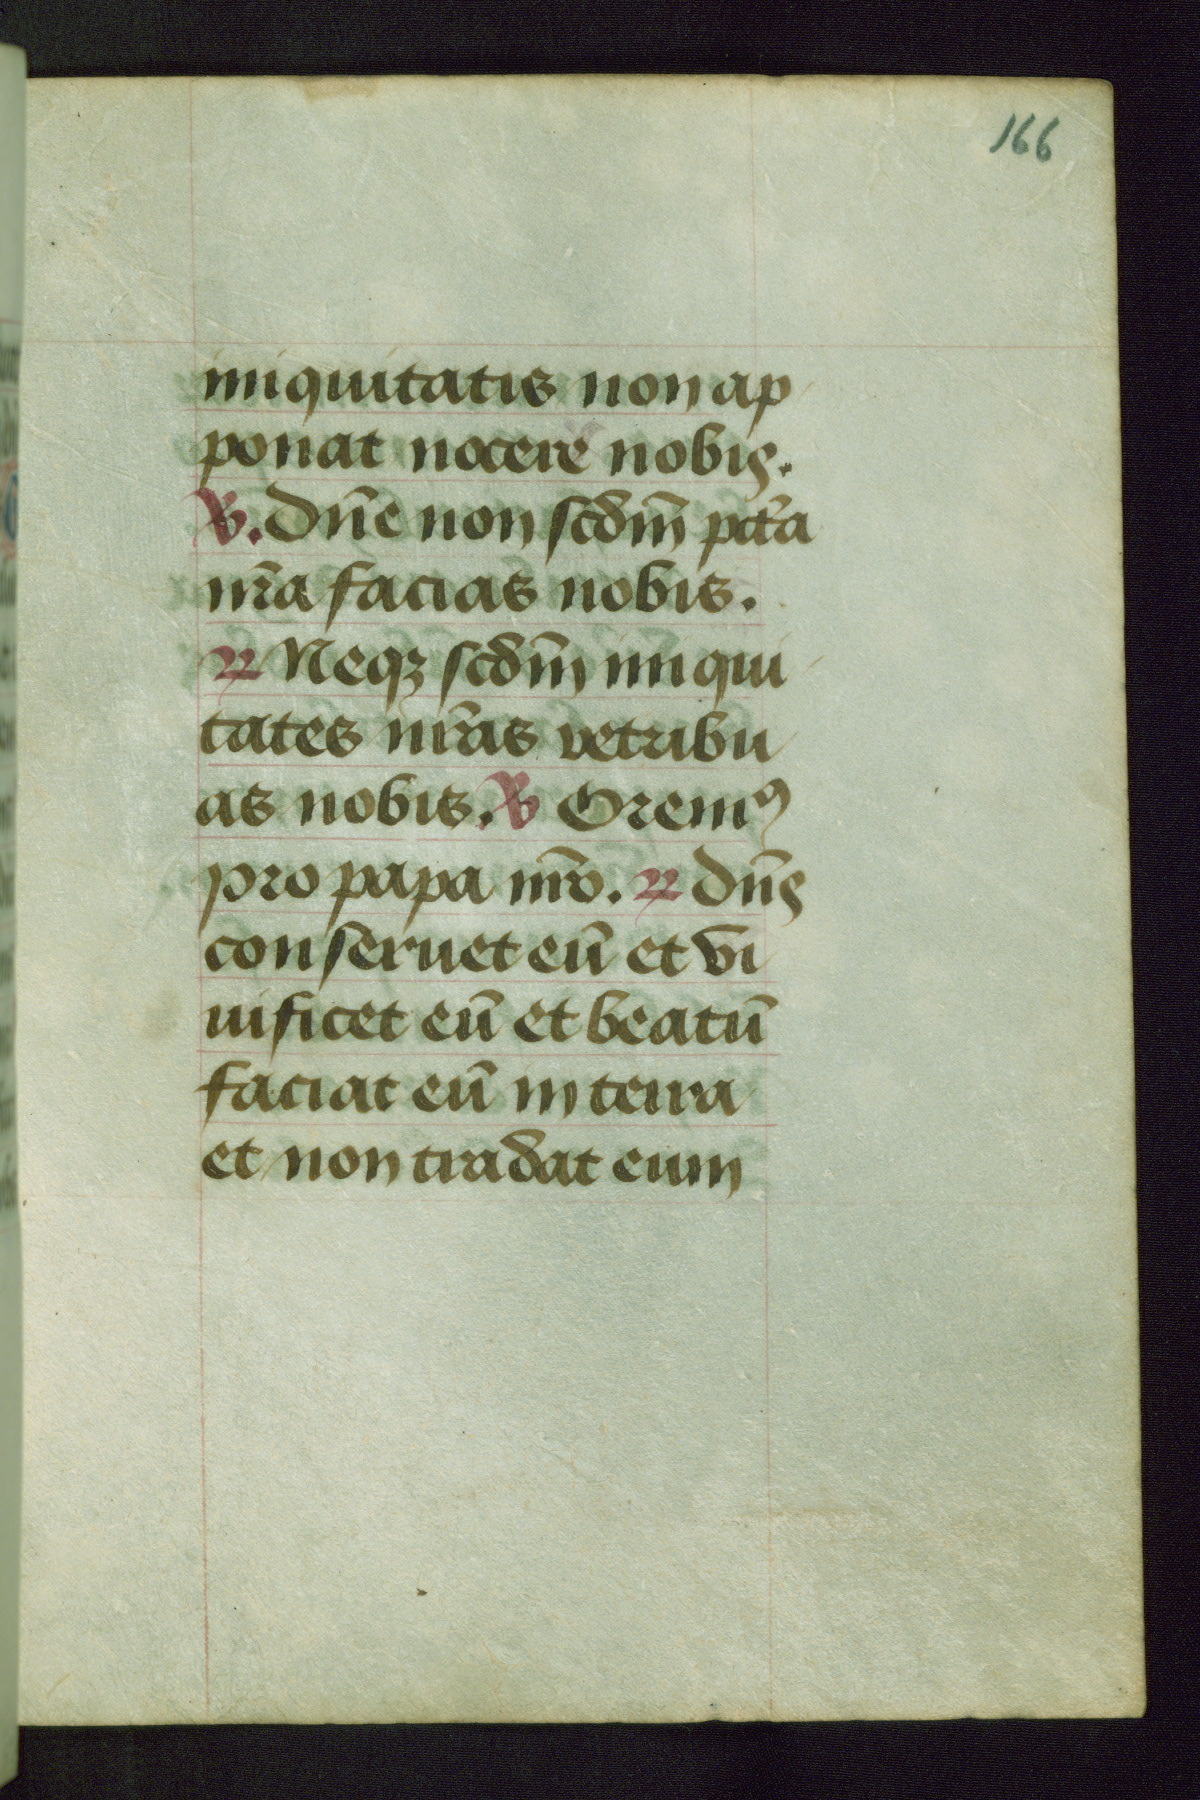 166
iniquitatis non ap
ponat nocere nobis.
℣. Dn̄e non scdm̄ pc̄ta
nr̄a facias nobis.
℟ Neqꝫ scdm̄ iniqui
tates nr̄as retribu
as nobis. ℣ Oremꝰ
pro papa nr̄o. ℟ Dn̄s
conseruet eū et vi
uificet eū et beatū
faciat eū in terra
et non tradat eum